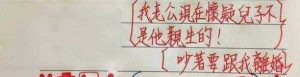 我老公現在懷疑兒子不
是他親生的!
吵著要跟我離婚